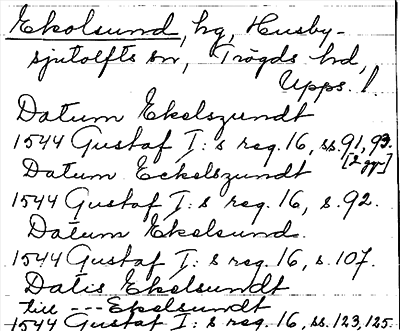 Ekolsund, hg, Husby-
sjutolfts sn, Trögds hd,
Upps. l.
Datum Ekelszundt
1544 Gustaf I:s reg. 16, ss. 91, 93.
[2 gr]
Datum Eckelszundt
1544 Gustaf I:s reg. 16, s. 92.
Datum Ekelsund.
1544 Gustaf I:s reg. 16, s. 107.
Datis Ekelsundt
till --- Ekelsundt
1544 Gustaf I:s reg. 16, ss. 123, 125.